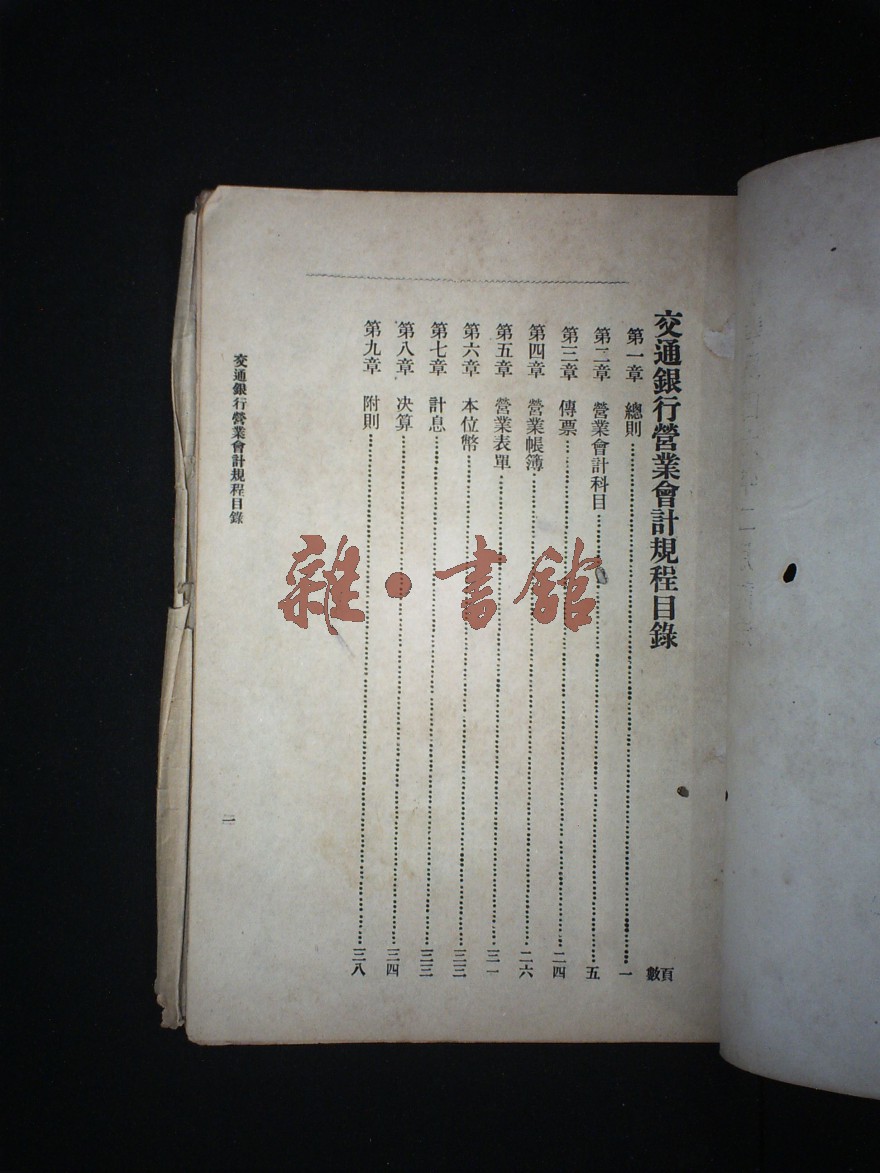 交通銀行營業會計規程目錄
頁數
第一章 總則 一
第二章 營業會計科目 五
第三章 傳票 二四
第四章 營業帳簿 二六
第五章 營業表單 三一
第六章 本位幣 三三
第七章 計息 三三
第八章 决算 三四
第九章 附則 三八
交通銀行營業會計規程目錄
一
雜·書館